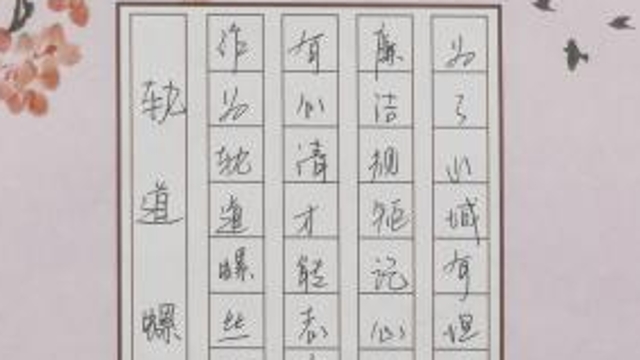 轨道螺
作为轨道螺丝
有心清才能表
廉洁规矩记心
为了山城有